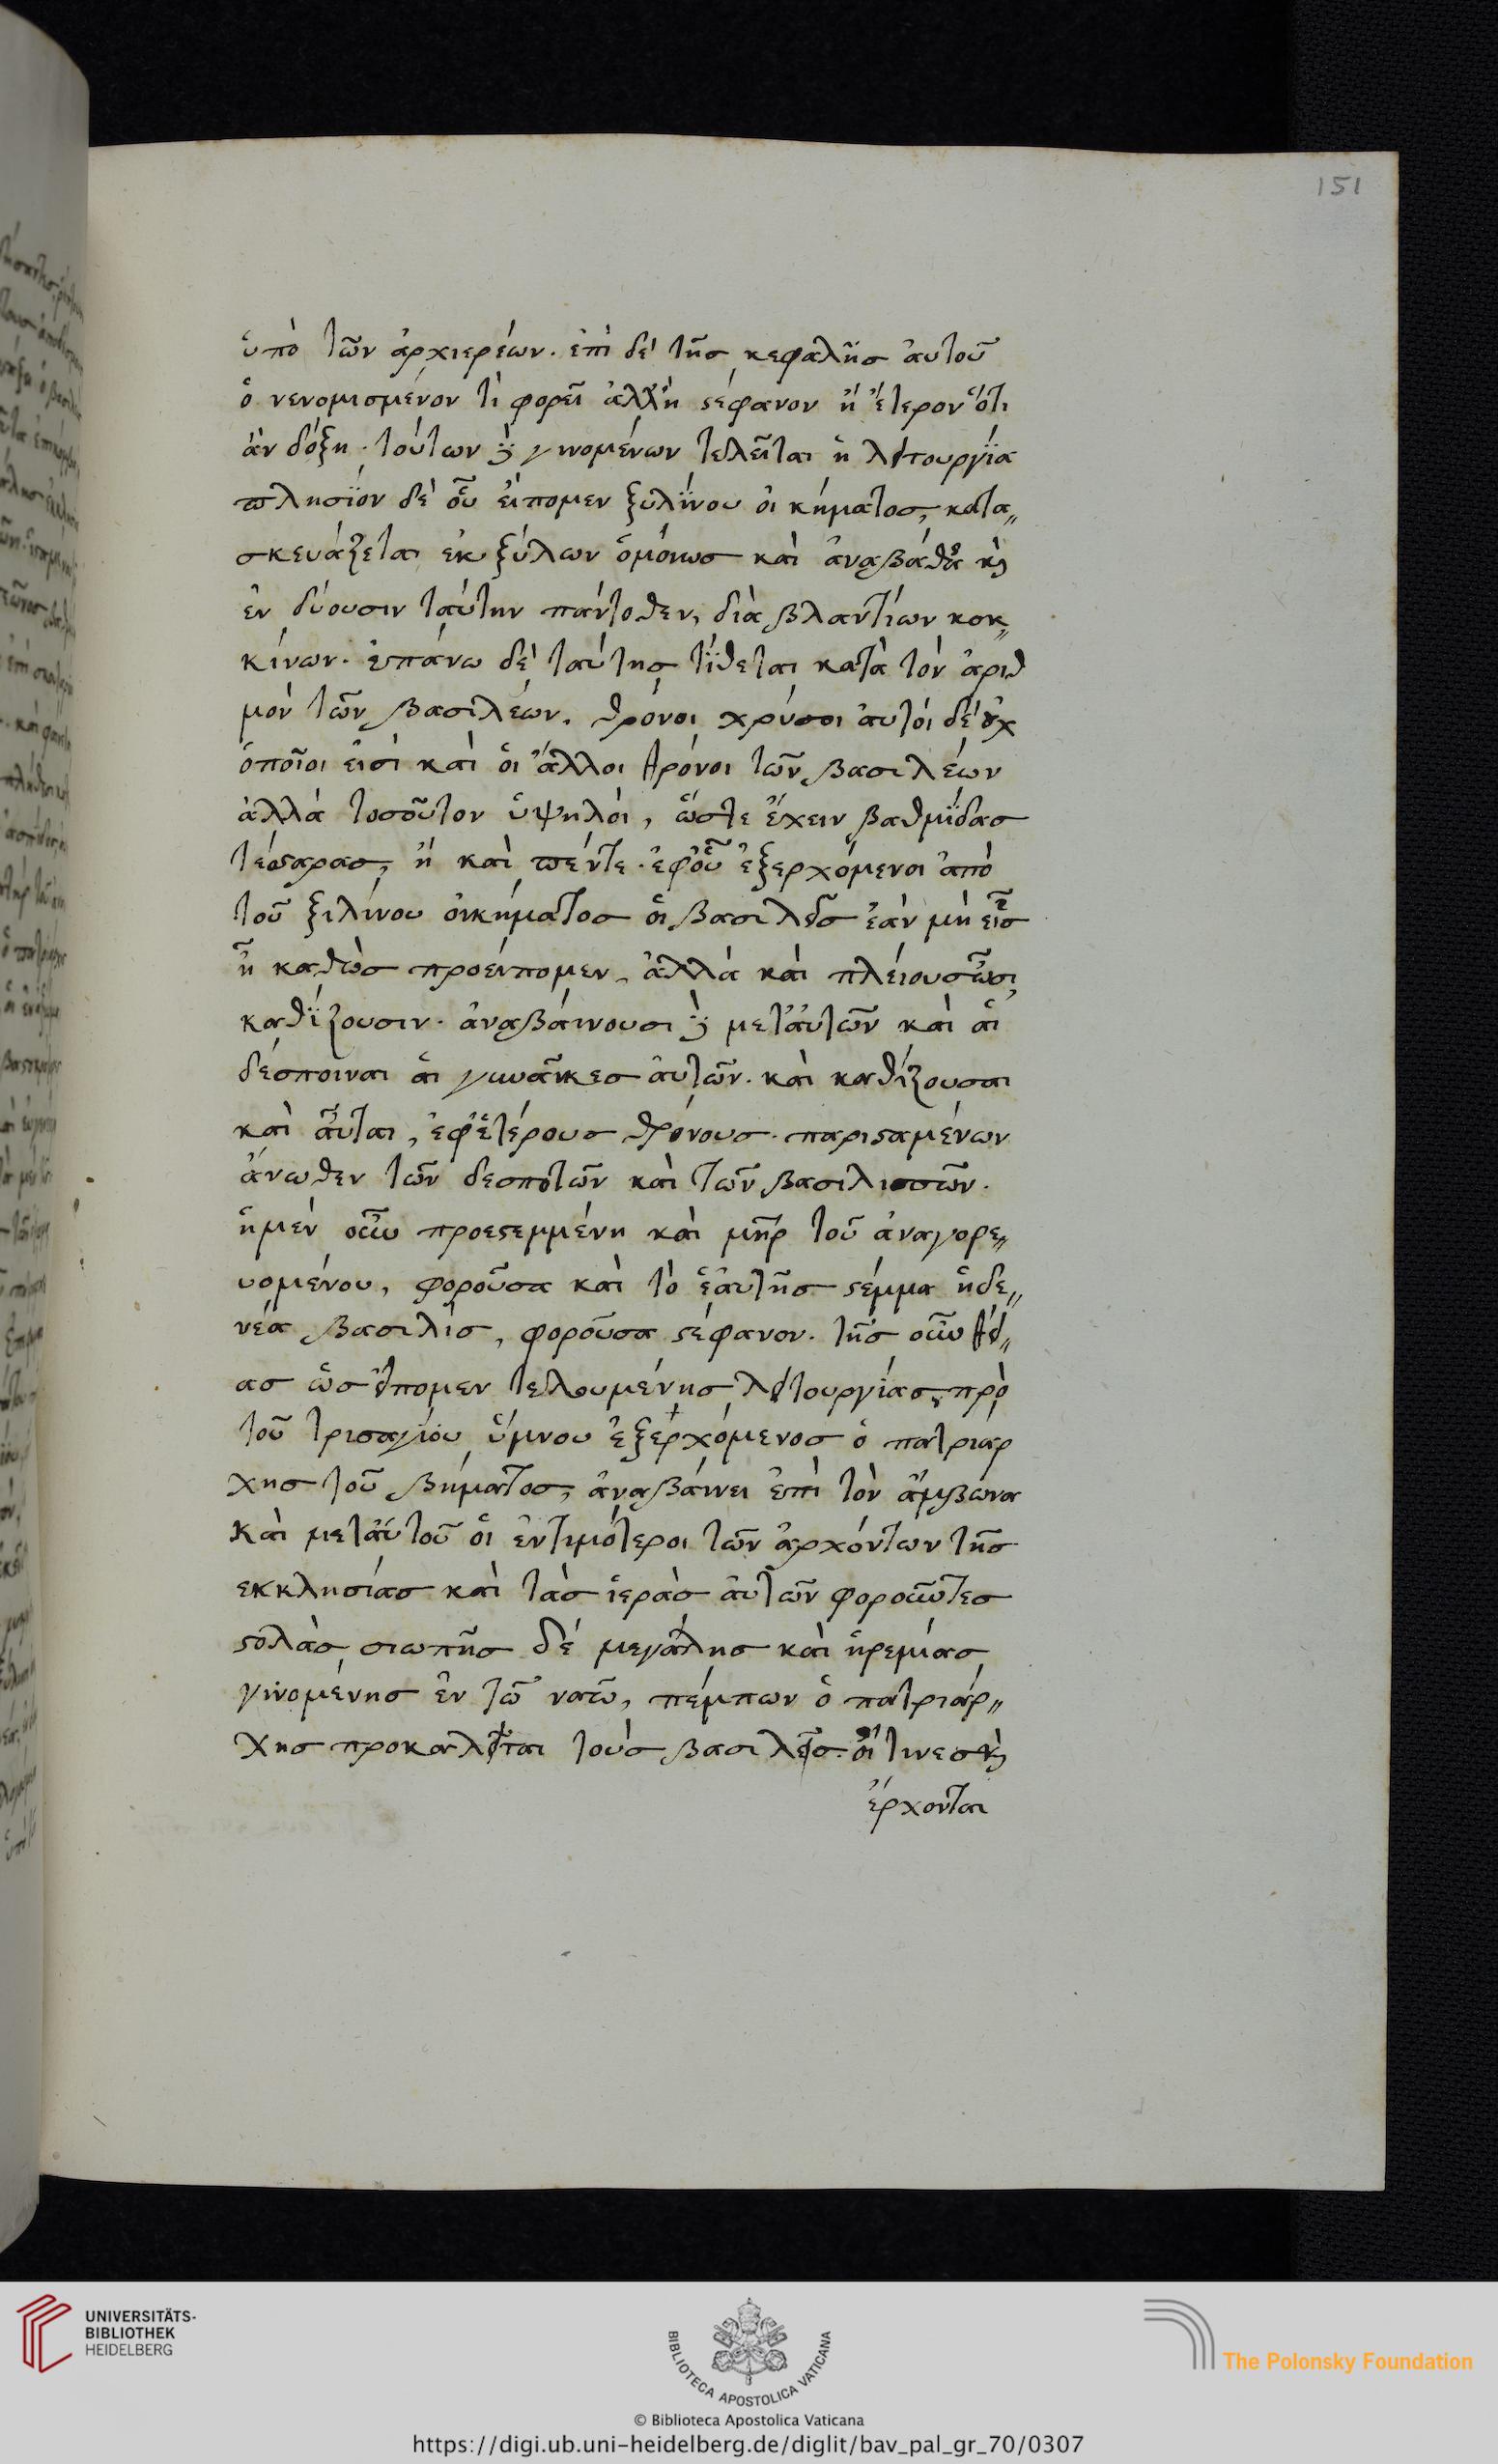 151
ὑπὸ τῶν ἀρχιερέων. ἐπὶ δὲ τῆς κεφαλῆς ἀυτοῦ
ὁ νενομισμένον τὶ φορεῖ ἀλλ' ἢ στέφανον ἢ ἕτερον ὅτι
ἀν δόξη. τούτων δὲ γινομένων τελεῖται ἡ λειτουργΐα
πλησΐον δὲ οὗ ἐίπομεν ξυλΐνου οἰκήματος, κατα„
σκευάζεται ἐκ ξύλων ὁμόιως καὶ ἀναβάθρα καὶ
ἐν δύουσιν ταύτην πάντοθεν, διὰ βλαντίων κοκ„
κίνων. ἐπάνω δὲ ταύτης τΐθεται κατὰ τὸν ἀριθ
μὸν τῶν βασιλέων, θρόνοι χρύσοι ἀυτοὶ δὲ οὐχ
ὁποῖοι ἐισὶ καὶ ὁι ἄλλοι θρόνοι τῶν βασιλέων
ἀλλὰ τοσοῦτον ὑψηλόι, ὥστε ἔχειν βαθμΐδας
τέσσαρας, ἢ καὶ πέντε. ἐφ' οὗ ἐξερχόμενοι ἀπὸ
τοῦ ξιλίνου ὀικήματος ὁι βασιλεῖς ἐὰν μὴ εἷς
ἦ καθὼς προείπομεν, ἀλλὰ καὶ πλέιους ὦσι,
καθΐζουσιν. ἀναβάινουσι δὲ μετ' ἀυτῶν καὶ ἁι
δέσποιναι ἁι γυναῖκες ἀυτῶν. καὶ καθίζουσαι
καὶ ἁῦται, ἐφ' ἑτέρους θρόνους. παρισταμένων
ἄνωθεν τῶν δεσποτῶν καὶ τῶν βασιλισσῶν.
ἡ μὲν οὖν προεστεμμένη καὶ μῆρ τοῦ ἀναγορε„
υομένου, φοροῦσα καὶ τὸ ἑἀυτῆς στέμμα ἡ δε„
νέα βασιλὶς, φοροῦσα στέφανον. τῆς οὖν θεί„
ας ὡς εἴπομεν τελουμένης λειτουργίας, πρὸ
τοῦ τρισαγΐου ὕμνου ἐξερχόμενος ὁ πατριάρ
χης τοῦ βήματος, ἀναβάινει ἐπὶ τὸν ἄμβωνα
καὶ μετ' ἀυτοῦ ὁι ἐντιμότεροι τῶν ἀρχόντων τῆς
ἐκκλησίας καὶ τὰς ἱερὰς ἀυτῶν φοροῦντες
στολὰς, σιωπῆς δὲ μεγάλης καὶ ἠρεμίας
γινομένης ἐν τῶ ναῶ, πέμπων ὁ πατριάρ„
χης προκαλεῖται τοὺς βασιλεῖς. ὅι τινες καὶ
ἔρχονται
UNIVERSITÄTS-
BIBLIOTHEK
HEIDELBERG
BIBLIOTECA APOSTOLICA VATICANA
The Polonsky Foundation
© Biblioteca Apostolica Vaticana
https://digi.ub.uni-heidelberg.de/diglit/bav_pal_gr_70/0307